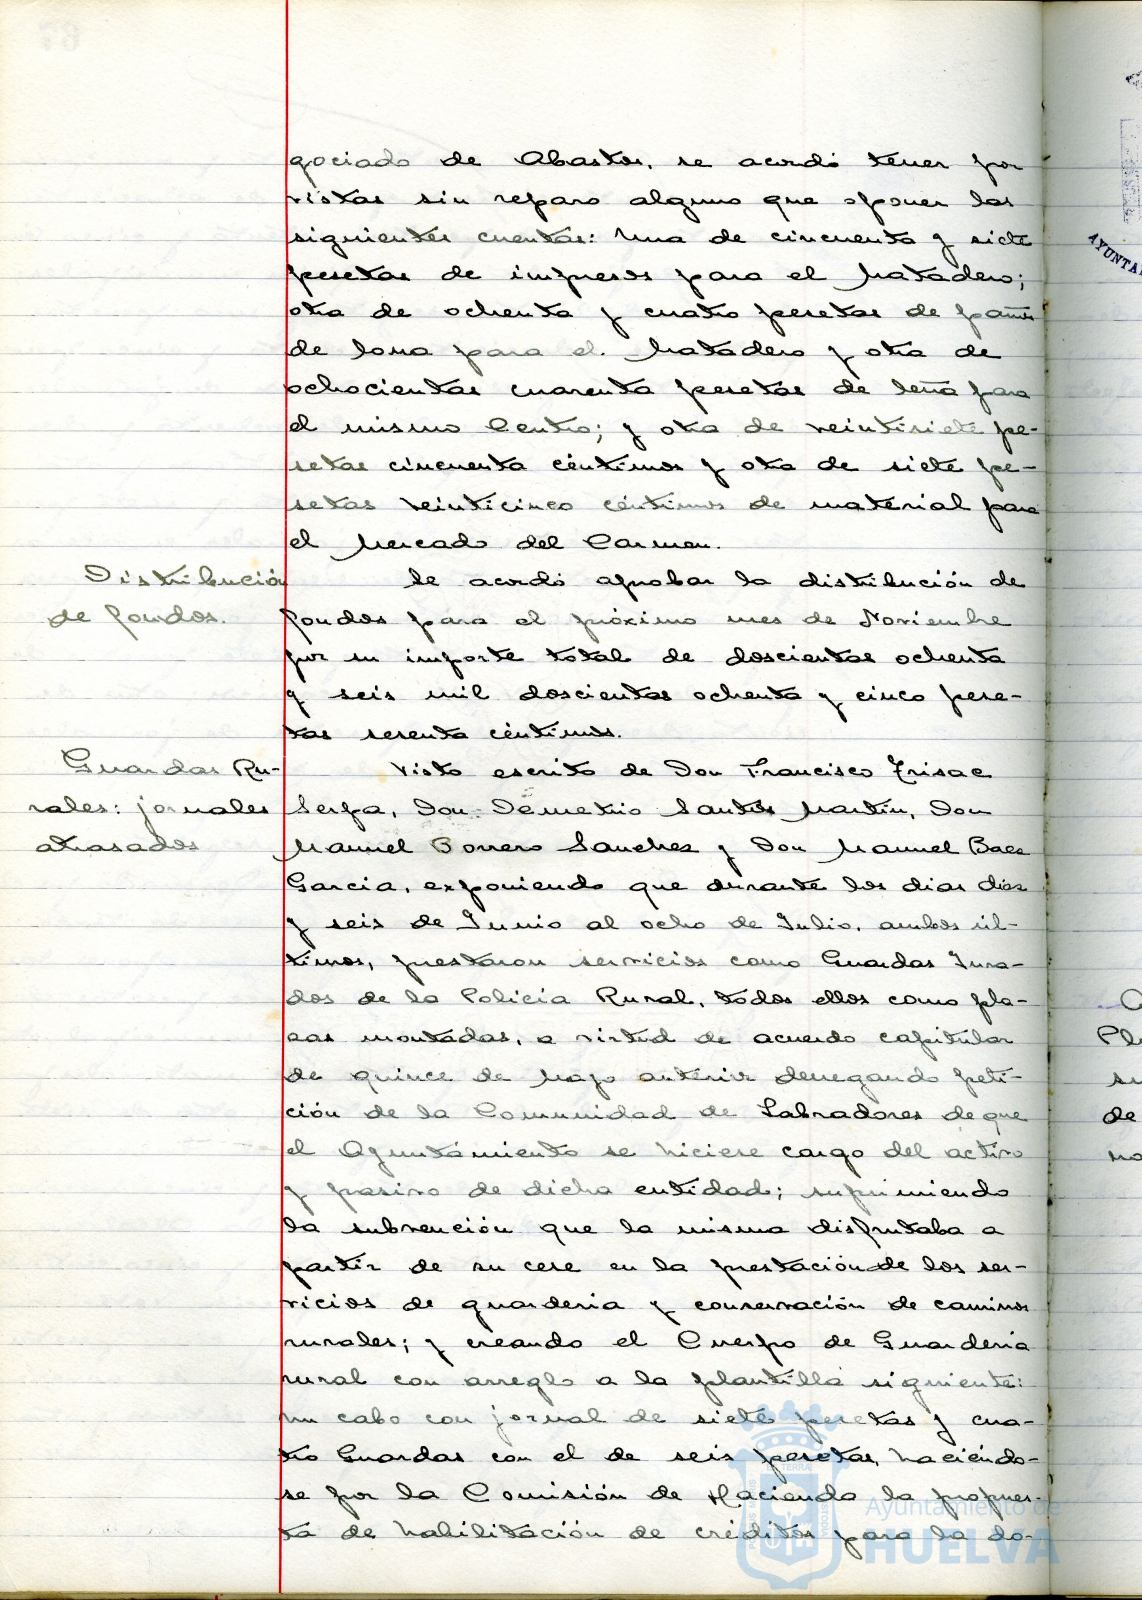 gociado de Abastos, se acordó tener por
vistas sin reparo alguno que oponer las
siguientes cuentas: Una de cincuenta y siete
pesetas de impresos para el Matadero;
otra de ochenta y cuatro pesetas de paños
de lona para el Matadero y otra de
ochocientas cuarenta pesetas de leña para
el mismo Centro; y otra de veintisiete pe-
setas cincuenta céntimos y otra de siete pe-
setas veinticinco céntimos de material para
el Mercado del Carmen.
Distribución
de fondos.
Se acordó aprobar la distribución de
fondos para el próximo mes de Noviembre
por su importe total de doscientas ochenta
y seis mil doscientas ochenta y cinco pese-
tas sesenta céntimos.
Guardas Ru-
rales: jornales
atrasados
Visto escrito de Don Francisco
Serpa, Don Demetrio Santos Martín, Don
Manuel Borrero Sanchez y Don Manuel Baez
Garcia, exponiendo que durante los dias diez
y seis de Junio al ocho de Julio, ambos úl-
timos, prestaron servicios como Guardas Jura-
dos de la Policía Rural, todos ellos como pla-
zas montadas, a virtud de acuerdo capitular
de quince de Mayo anterior denegando peti-
ción de la Comunidad de Labradores de que
el Ayuntamiento se hiciese cargo del activo
y pasivo de dicha entidad; suprimiendo
la subvención que la misma disfrutaba a
partir de su cese en la prestación de los ser-
vicios de guarderia y conservación de caminos
rurales; y creando el Cuerpo de Guarderia
rural con arreglo a la plantilla siguiente:
un cabo con jornal de siete pesetas y cua-
tro Guardas con el de seis pesetas, haciéndo-
se por la Comisión de Hacienda la propues-
ta de habilitación de créditos para la do-
Ayuntamiento de
HUELVA